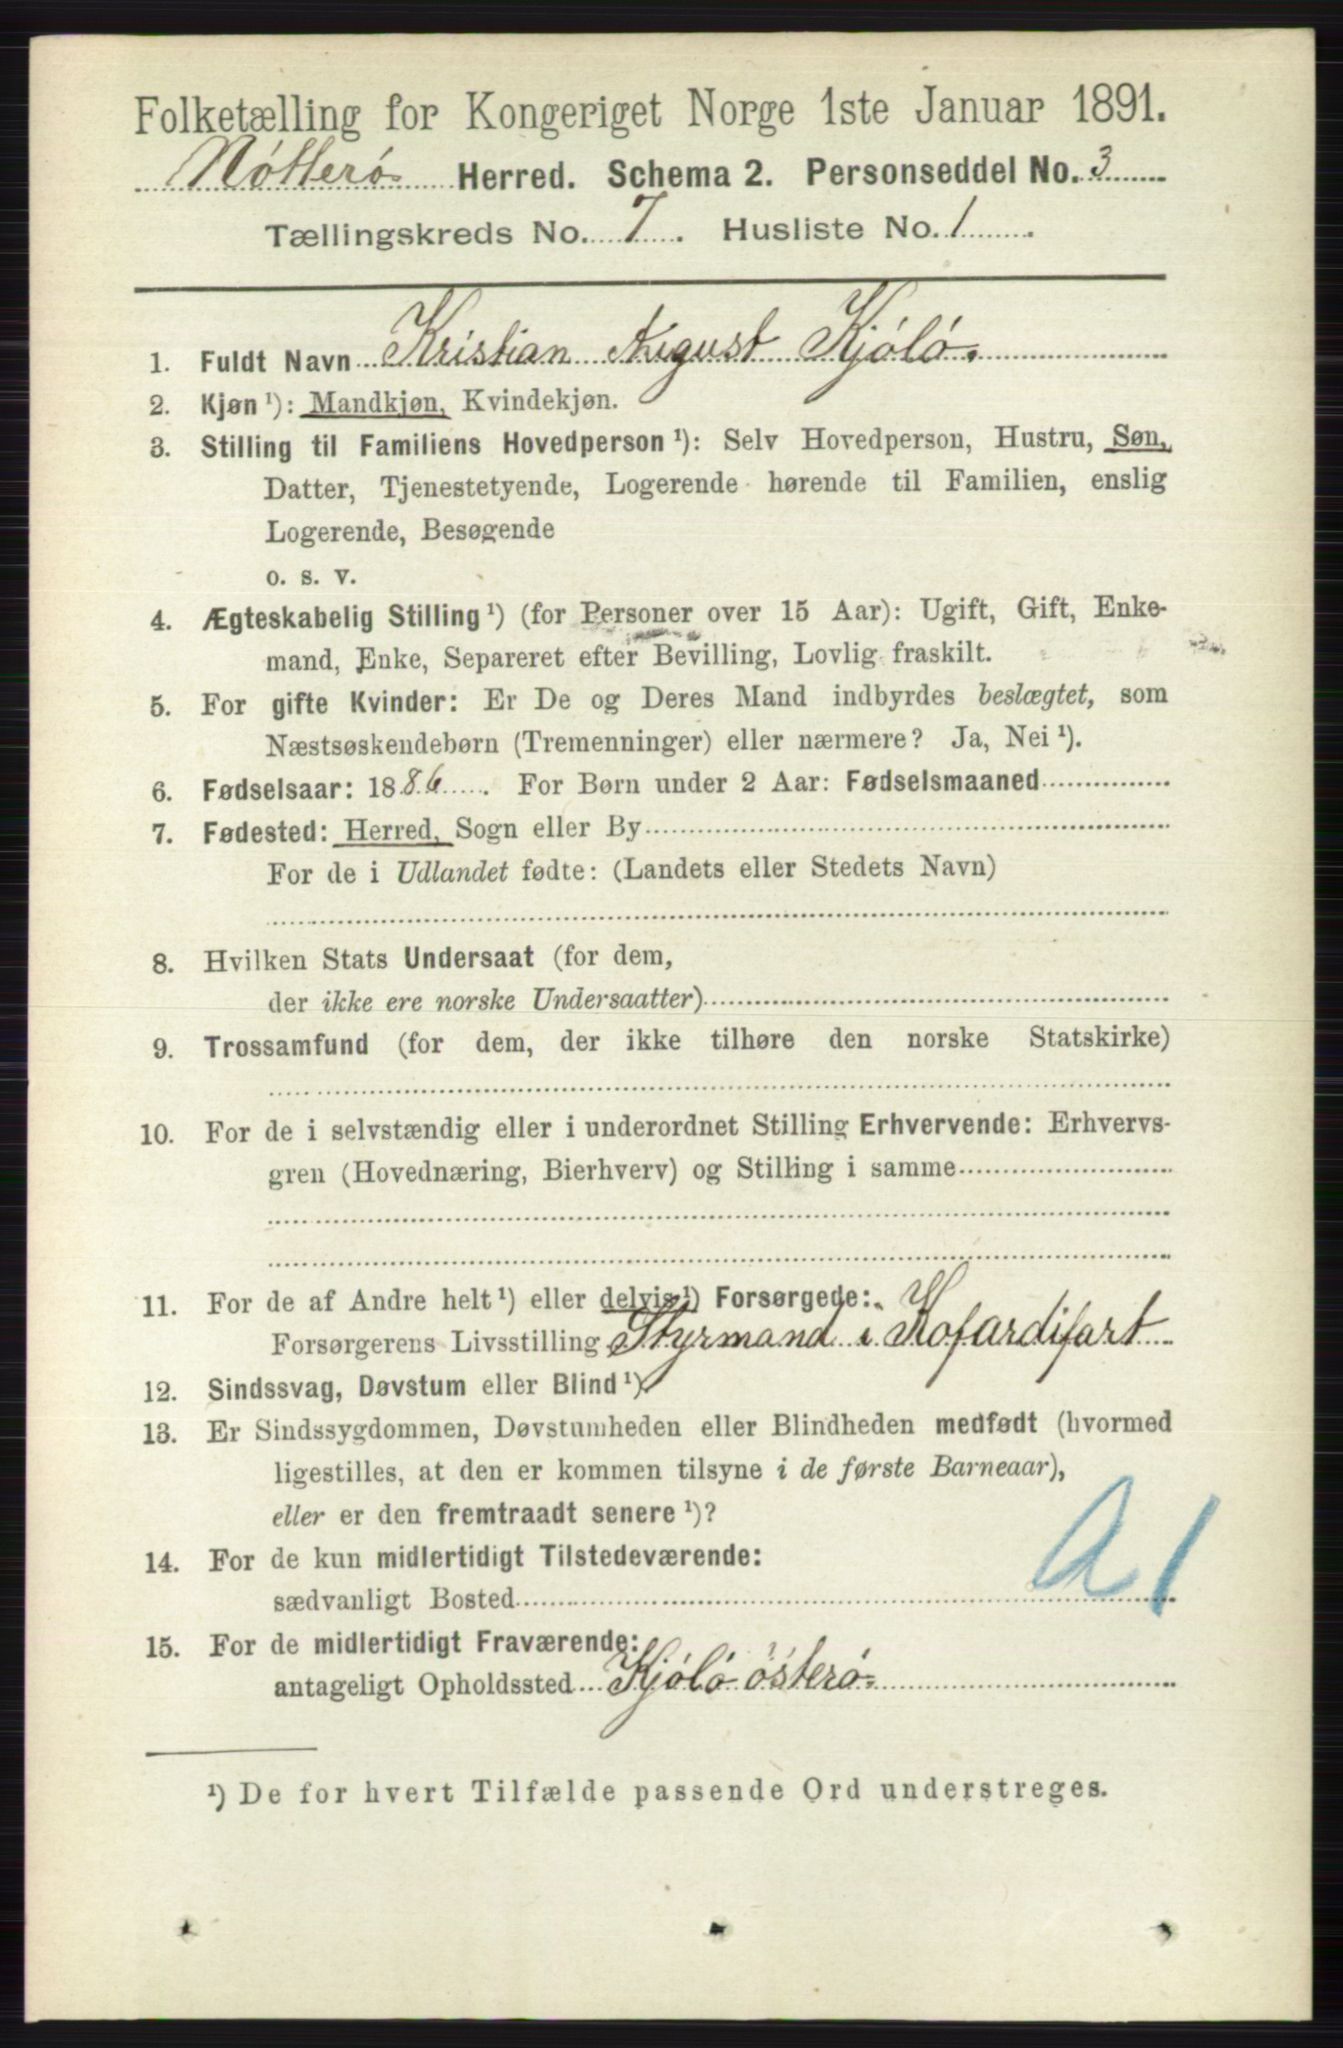 Folketælling for Kongeriget Norge 1ste Januar 1891.
Nötterö Herred. Schema 2. Personseddel No. 3
Tællingskreds No. 7. Husliste No. 1.
1. Fuldt Navn Kristian August Kjölö.
2. Kjøn ¹): Mandkjøn, Kvindekjøn.
3. Stilling til Familiens Hovedperson ¹): Selv Hovedperson, Hustru, Søn,
Datter, Tjenestetyende, Logerende hørende til Familien, enslig
Logerende, Besøgende
o. s. v.
4. Ægteskabelig Stilling ¹) (for Personer over 15 Aar): Ugift, Gift, Enke-
mand, Enke, Separeret efter Bevilling, Lovlig fraskilt.
5. For gifte Kvinder: Er De og Deres Mand indbyrdes beslægtet, som
Næstsøskendebørn (Tremenninger) eller nærmere? Ja, Nei ¹).
6. Fødselsaar: 1886. For Børn under 2 Aar: Fødselsmaaned
7. Fødested: Herred, Sogn eller By
For de i Udlandet fødte: (Landets eller Stedets Navn)
8. Hvilken Stats Undersaat (for dem,
der ikke ere norske Undersaatter)
9. Trossamfund (for dem, der ikke tilhøre den norske Statskirke)
10. For de i selvstændig eller i underordnet Stilling Erhvervende: Erhvervs-
gren (Hovednæring, Bierhverv) og Stilling i samme
11. For de af Andre helt ¹) eller delvis ¹) Forsørgede:
Forsørgerens Livsstilling Styrmand i Kofardifart
12. Sindssvag, Døvstum eller Blind ¹).
13. Er Sindssygdommen, Døvstumheden eller Blindheden medfødt (hvormed
ligestilles, at den er kommen tilsyne i de første Barneaar),
eller er den fremtraadt senere ¹)?
14. For de kun midlertidigt Tilstedeværende:
sædvanligt Bosted
A 1
15. For de midlertidigt Fraværende:
antageligt Opholdssted Kjölö österö
¹) De for hvert Tilfælde passende Ord understreges.